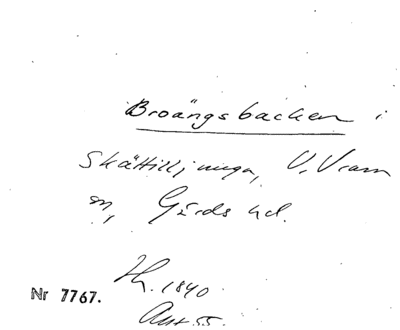 Broängsbacken i
Skättilljunga, V. Vram
sn, Gärds hd.
Nr 7767.
1840